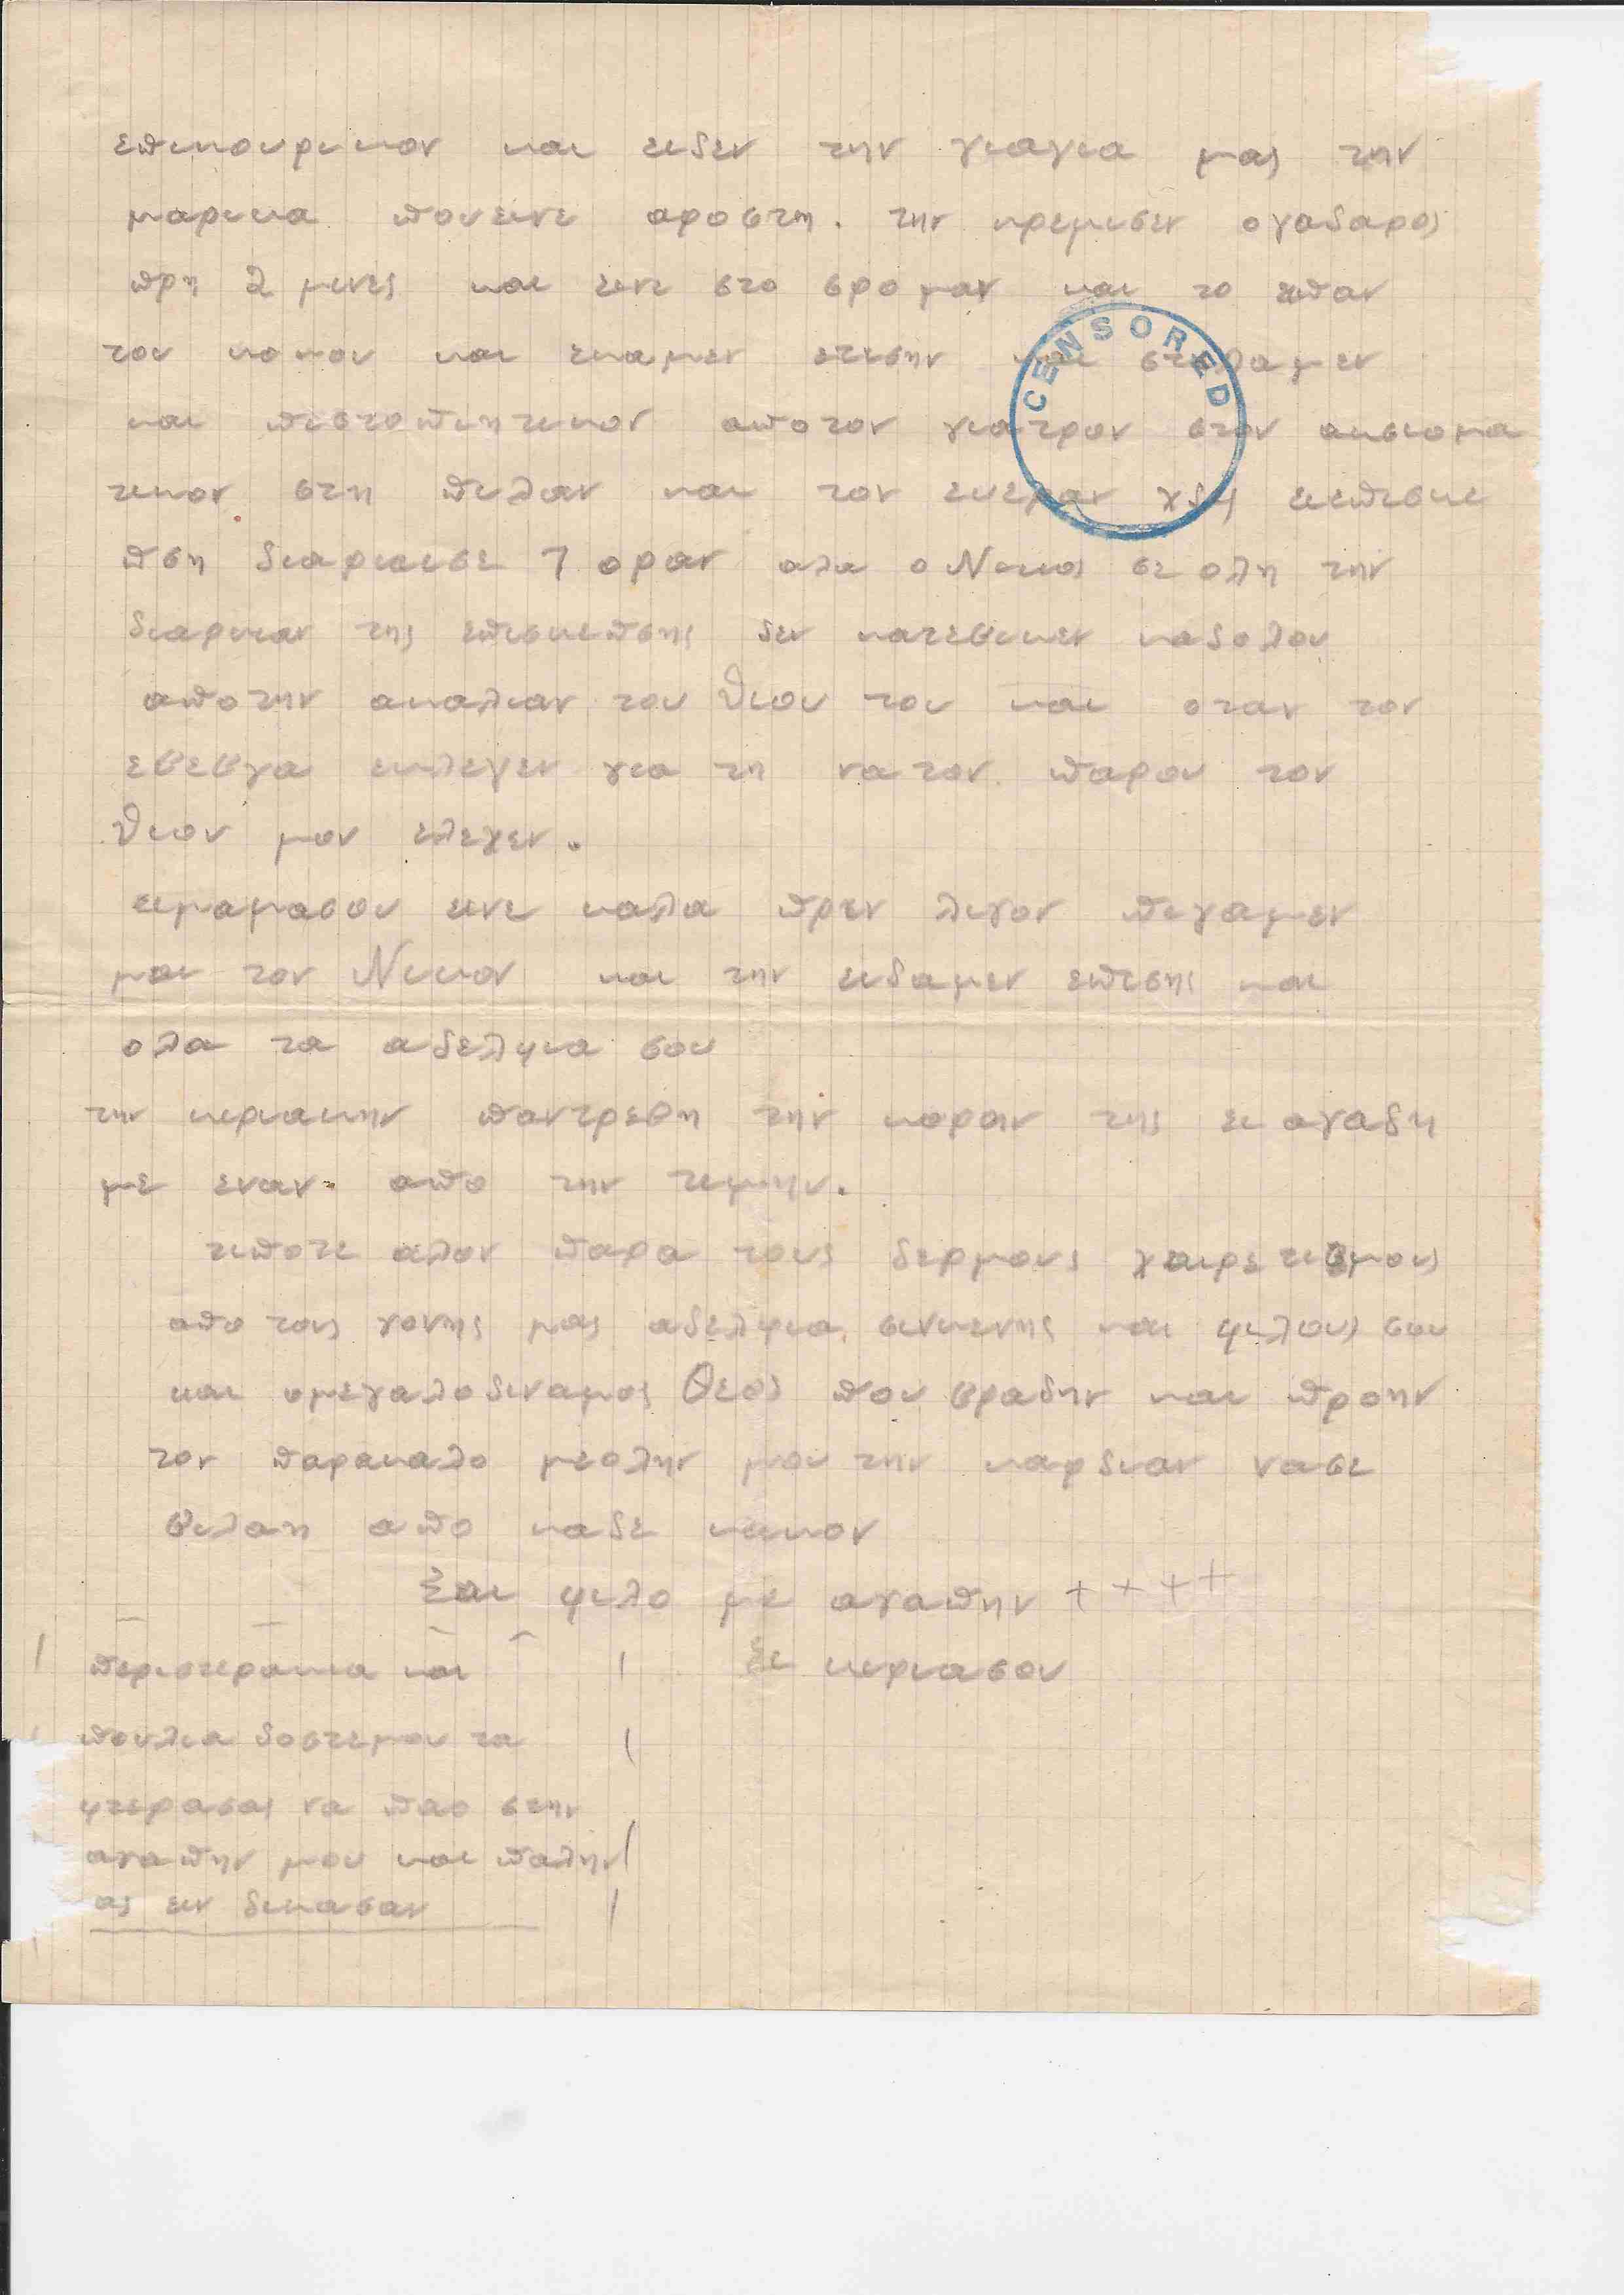 επικουρικον και ειδεν την γιαγια μας την
μαρικα πουεινε αροστη. την κρεμισεν ογαδαρος
πρη 2 μινες και εινε στο σρομαν και το ειπαν
τον κοκον και εκαμεν ετισην και στιλαμεν
και πιστοπιητικον αποτον γιατρον στον ακσιομα
τικον στη πιλαν και τον εφεραν χδες ειεπισκε
πση διαρκισε 7 οραν αλα ο Νικος σε ολη την
διαρκιαν της επισκεπσης δεν κατεβικεν καδολου
αποτην ακαλιαν του θιου του και οταν τον
εβεβγα εκλεγεν για τη νατον παρον τον
θιον μου ελεγεν.
ειμαμασου εινε καλα πριν λιγον πιγαμεν
μαι τον Νικον και την ειδαμεν επισης και
ολα τα αδελφια σου
την κιριακην παντρεβη την κοραιν της ει αγαδη
με εναν απο την τιμην.
τιποτε αλον παρα τους δερμους χαιρετισμους
απο τους γονης μας αδελφια σινκενης και φιλους σου
και ομεγαλοδιναμος Θεος που βραδην και προην
τον παρακαλο μεολην μου την καρδιαν νασε
βιλαη απο καδε κακον
Σαι φιλο με αγαπην ++++
Σι κιριασου
περιστερακια και
πουλια δοστεμου τα
φτερασας να παο στην
αγαπην μου και παλην
ας ειν δικασαν
CENSORED